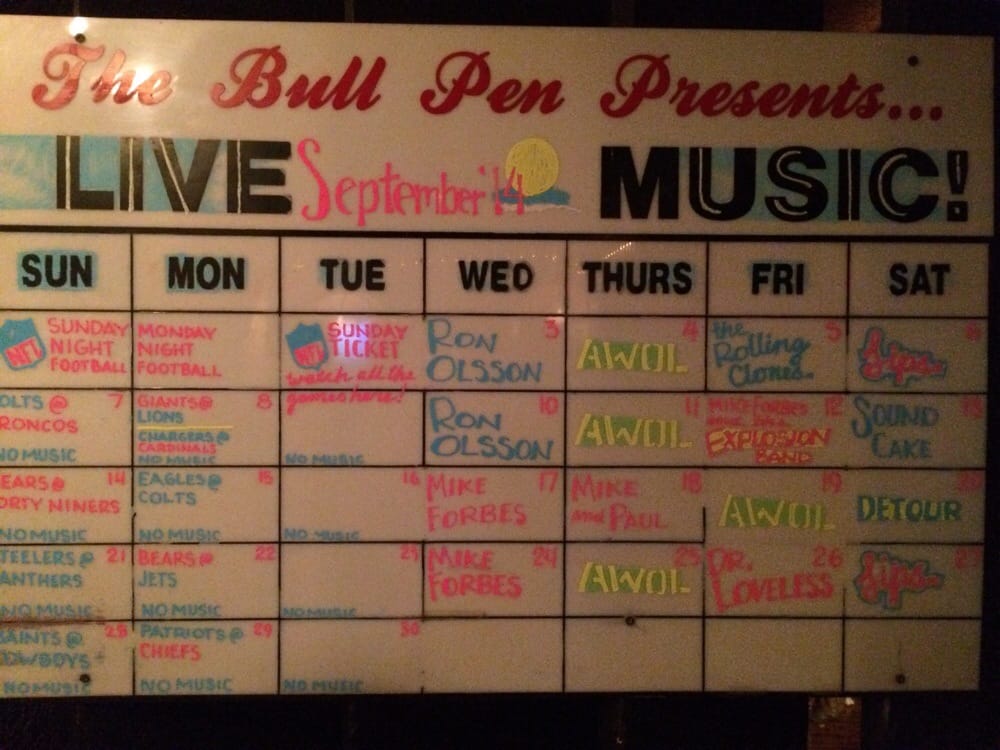 The Bull Pen Presents...
LIVE September '14 MUSIC!
SUN MON TUE WED THURS FRI SAT
NFL SUNDAY NIGHT FOOTBALL
MONDAY NIGHT FOOTBALL
NFL SUNDAY TICKET
watch all the games here!
3 RON OLSSON
4 AWOL
5 the Rolling Clones.
6 Lips
OLTS @ RONCOS 7
NO MUSIC
GIANTS @ LIONS 8
CHARGERS @ CARDINALS
NO MUSIC
NO MUSIC
RON OLSSON 10
AWOL 11
MIKE FORBES 12
EXPLOSION BAND
SOUND CAKE 13
EARS @ ORTY NINERS 14
NO MUSIC
EAGLES @ COLTS 15
NO MUSIC
16
NO MUSIC
MIKE FORBES 17
MIKE and PAUL 18
AWOL 19
DETOUR 20
TEELERS @ ANTHERS 21
NO MUSIC
BEARS @ JETS 22
NO MUSIC
23
NO MUSIC
MIKE FORBES 24
AWOL 25
DR. LOVELESS 26
Lips 27
SAINTS @ COWBOYS 28
NO MUSIC
PATRIOTS @ CHIEFS 29
NO MUSIC
30
NO MUSIC